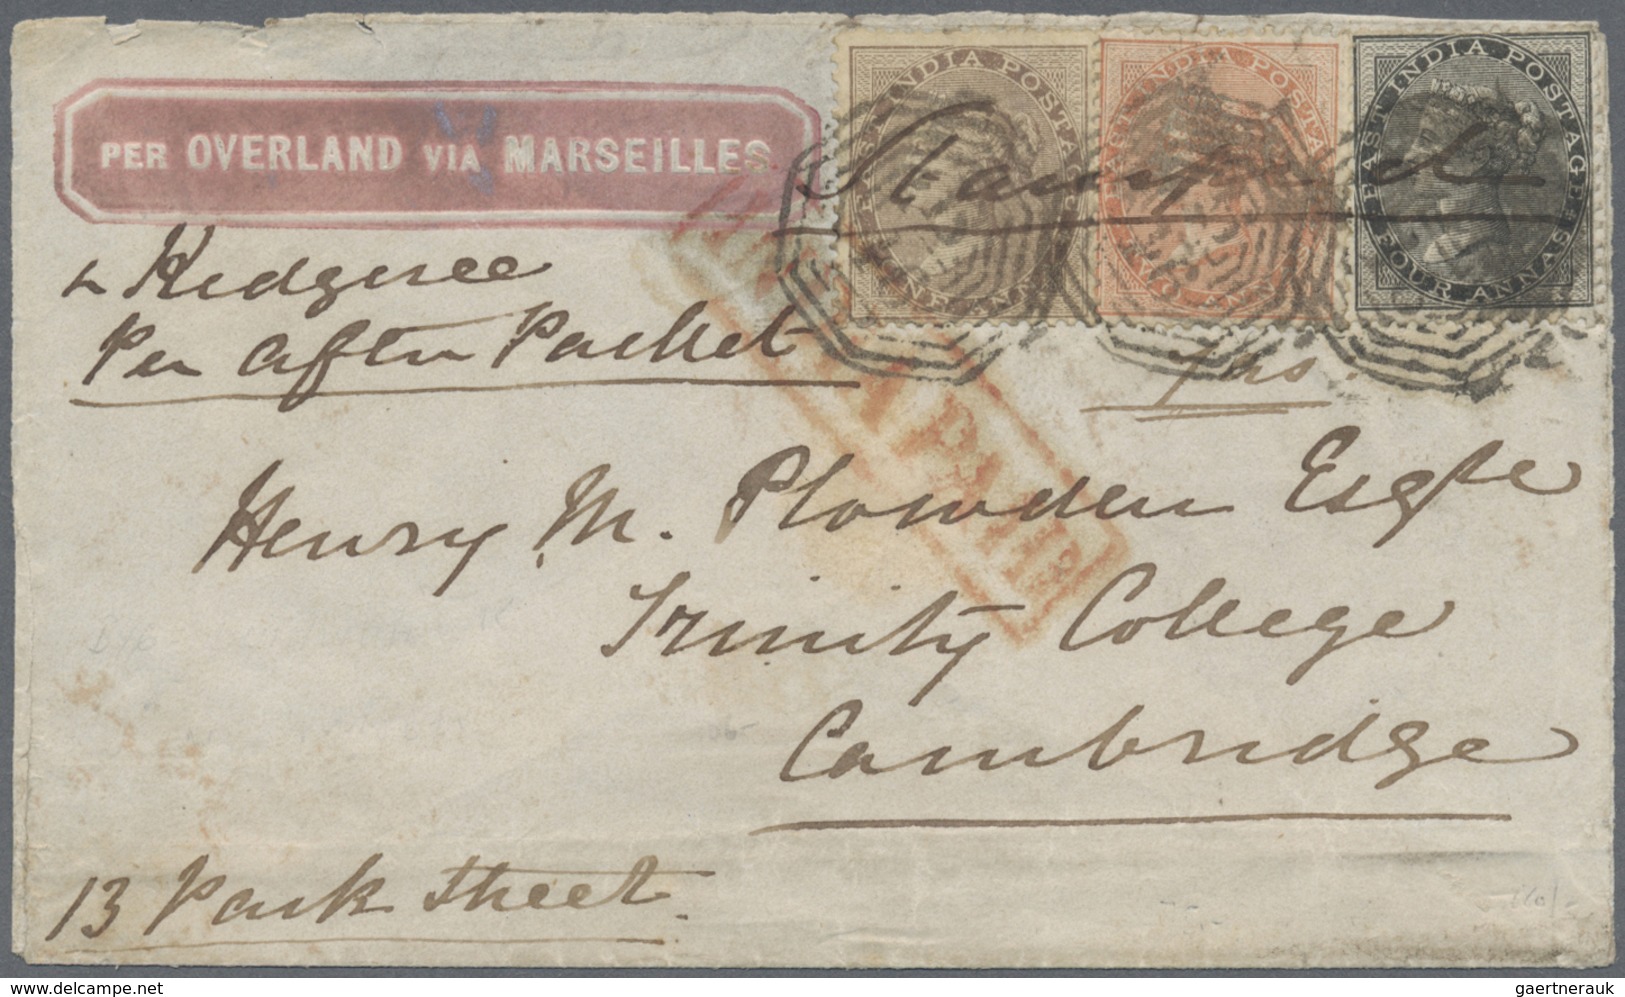 PER OVERLAND VIA MARSEILLES
EAST INDIA POSTAGE
ONE ANNA
EAST INDIA POSTAGE
TWO ANNAS
EAST INDIA POSTAGE
FOUR ANNAS
Kedgeree
Per after Packet
INDIA PAID
Henry M. Plowden Esqre
Trinity College
Cambridge
13 Park Street
gaertnerauk